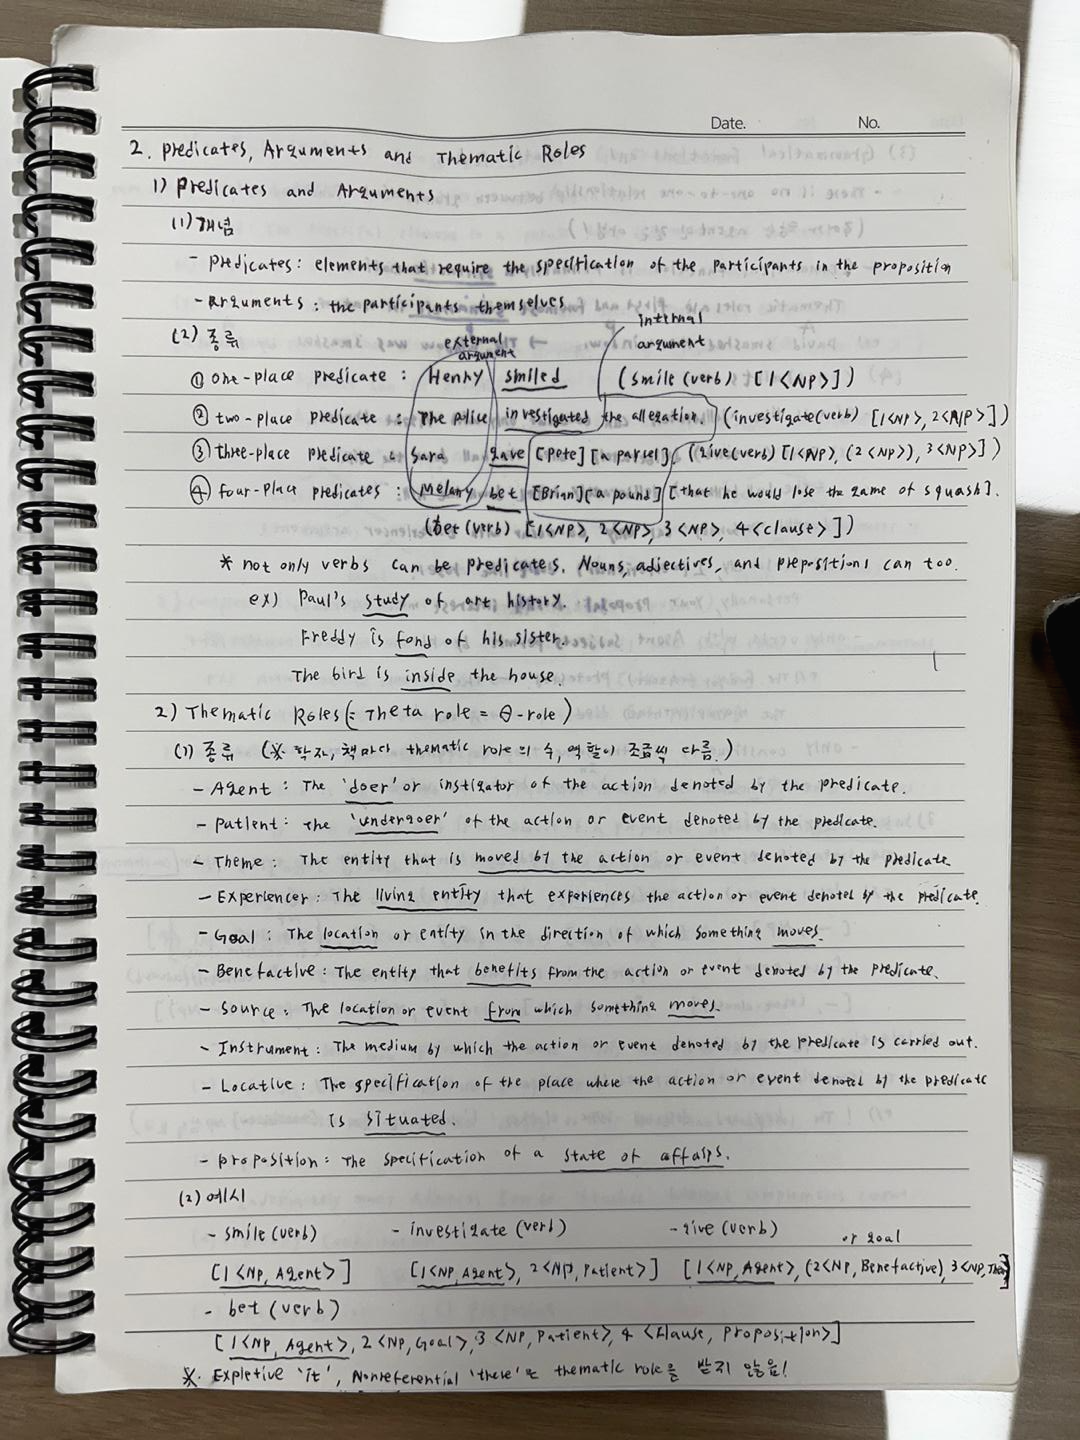 Date. No.
2. Predicates, Arguments and Thematic Roles
1) Predicates and Arguments
(1) 개념
- Predicates: elements that require the specification of the participants in the proposition
- Arguments : the participants themselves
(2) 종류
external argument
internal argument
① one-place predicate : Henry smiled (smile (verb) [1<NP>])
② two-place predicate : The plice investigated the allegation. (investigate(verb) [1<NP>, 2<NP>])
③ three-place predicate : Sara gave [Pete] [a parcel]. (give(verb) [1<NP>, (2<NP>), 3<NP>])
④ four-place predicates : Melany bet [Brian] [a pound] [that he would lose the game of squash].
(bet (verb) [1<NP>, 2<NP>, 3<NP>, 4<clause>])
* not only verbs can be predicates. Nouns, adjectives, and prepositions can too.
ex) Paul's study of art history.
Freddy is fond of his sister.
The bird is inside the house.
2) Thematic Roles (= Theta role = θ-role)
(1) 종류 (※ 학자, 책마다 thematic role의 수, 역할이 조금씩 다름.)
- Agent : The 'doer' or instigator of the action denoted by the predicate.
- Patient : The 'undergoer' of the action or event denoted by the predicate.
- Theme : The entity that is moved by the action or event denoted by the predicate.
- Experiencer : The living entity that experiences the action or event denoted by the predicate.
- Goal : The location or entity in the direction of which something moves.
- Benefactive : The entity that benefits from the action or event denoted by the predicate.
- Source : The location or event from which something moves.
- Instrument : The medium by which the action or event denoted by the predicate is carried out.
- Locative : The specification of the place where the action or event denoted by the predicate
is situated.
- Proposition : The specification of a state of affairs.
(2) 예시
- smile (verb) - investigate (verb) - give (verb) or goal
[1<NP, Agent>] [1<NP, Agent>, 2<NP, Patient>] [1<NP, Agent>, (2<NP, Benefactive), 3<NP, Theme>]
- bet (verb)
[1<NP, Agent>, 2<NP, Goal>, 3<NP, Patient>, 4<Clause, Proposition>]
※. Expletive 'it', Nonreferential 'there'는 thematic role을 받지 않음!